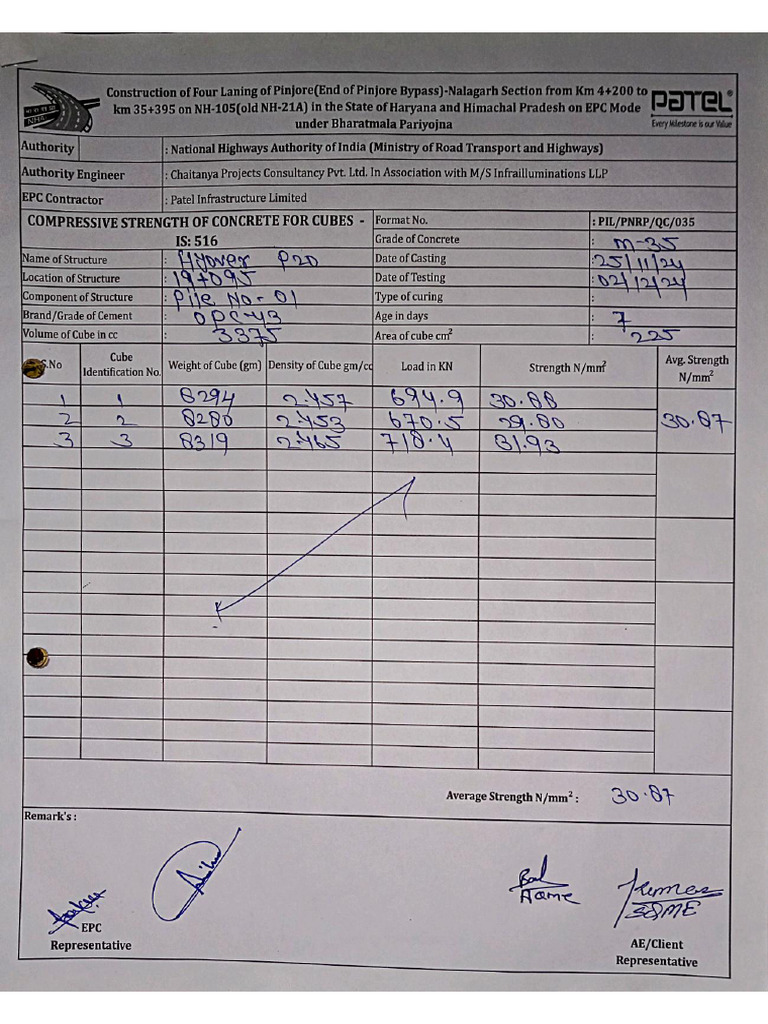 Construction of Four Laning of Pinjore(End of Pinjore Bypass)-Nalagarh Section from Km 4+200 to
km 35+395 on NH-105(old NH-21A) in the State of Haryana and Himachal Pradesh on EPC Mode
under Bharatmala Pariyojna
PATEL®
Every Milestone is our Value
NHAI
Authority : National Highways Authority of India (Ministry of Road Transport and Highways)
Authority Engineer : Chaitanya Projects Consultancy Pvt. Ltd. In Association with M/S Infrailluminations LLP
EPC Contractor : Patel Infrastructure Limited
COMPRESSIVE STRENGTH OF CONCRETE FOR CUBES -
IS: 516
Format No. : PIL/PNRP/QC/035
Grade of Concrete : M-35
Name of Structure : Flyover P20 Date of Casting : 25/11/24
Location of Structure : 19+095 Date of Testing : 02/12/24
Component of Structure : Pile No-01 Type of curing :
Brand/Grade of Cement : OPC-43 Age in days : 7
Volume of Cube in cc : 3375 Area of cube cm² : 225
S.No Cube Identification No. Weight of Cube (gm) Density of Cube gm/cc Load in KN Strength N/mm² Avg. Strength N/mm²
1 1 8294 2.457 694.9 30.88
2 2 8280 2.453 670.5 29.80 30.87
3 3 8319 2.465 718.4 31.93
Average Strength N/mm² : 30.87
Remark's :
EPC
Representative
AE/Client
Representative